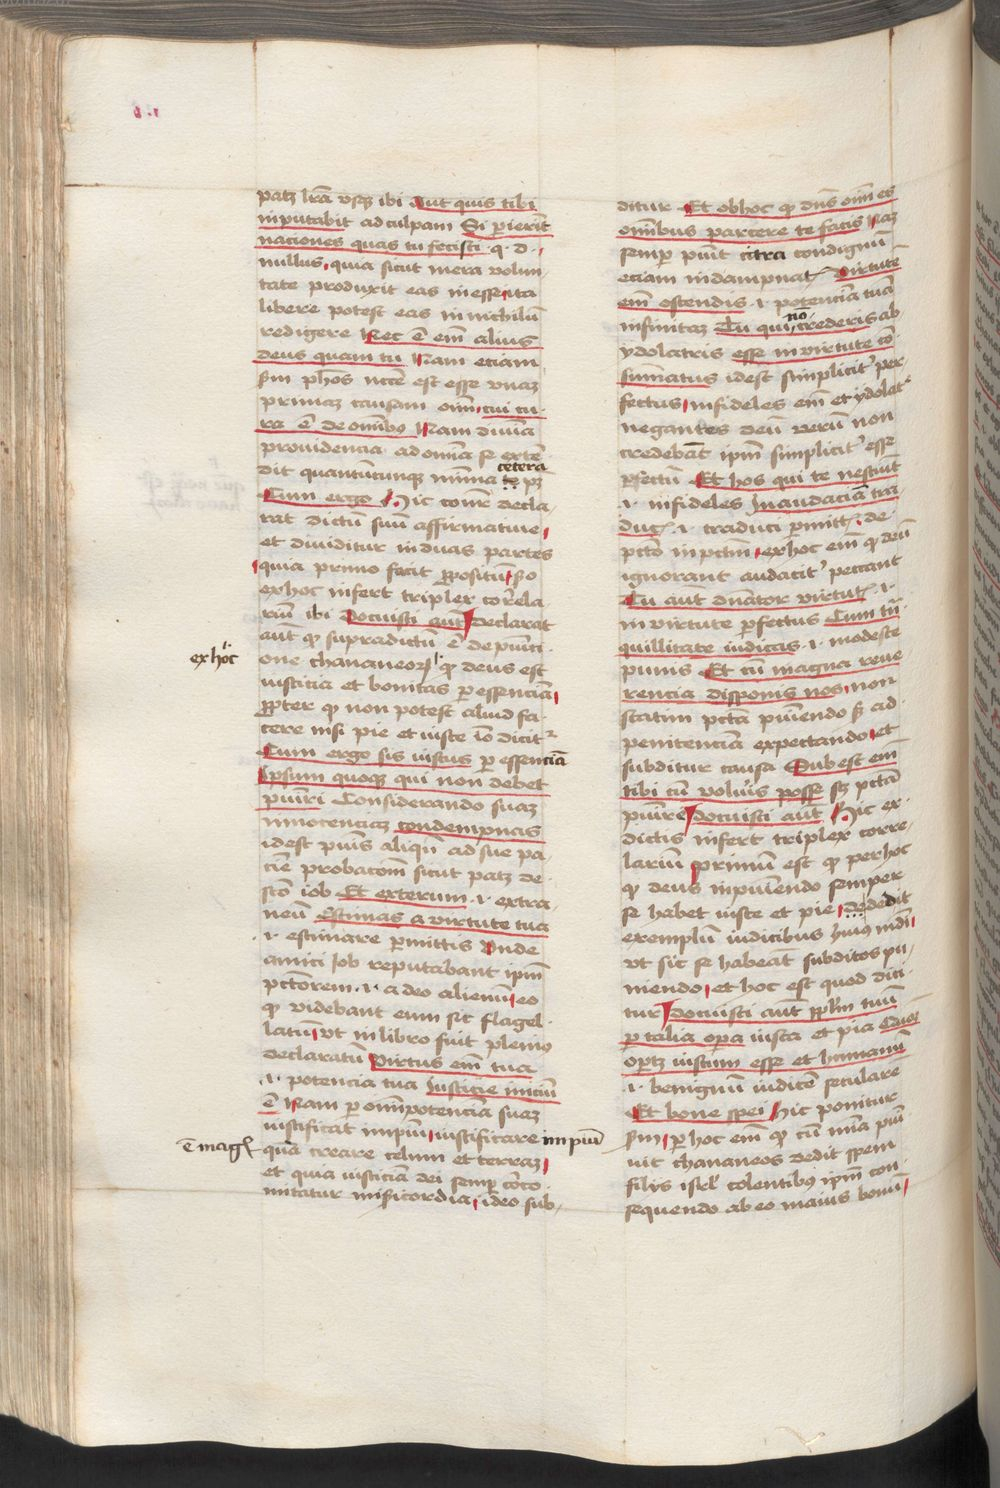 patz lrā vsqz ibi Aut quis tibi
inputabit ad culpam Si perierīt
naciones quas tu fecisti · q · d ·
nullus, quia sicut mera volun
tate produxit eas in esse, ita
libere potest eas in nichilū
redigere Nec ē em̄ alius
deus quam tu Nam etiam
sm̄ ph̄os nccē est esse vnaz
primaz causam om̄, cui cu
ra ē de om̄ibus Nam diuīa
prouidencia ad om̄ia se extē
dit quantūcunqz minima cetera pz
Cum ergo Hic cōnr̄ decla
rat dictū suū affirmatiue,
et diuiditur in duas partes
quia primo facit propositū, 2o
ex hoc infert triplex correla
riū ibi Docuisti aut̄ declarat
aūt qp̄ supradictū ē de puniti
ex hoc
one chananeorz qp̄ deus est
iusticia et bonitas per essenciā,
propter qp̄ non potest aliud fa
cere nisi pie et iuste iō dicitr
Cum ergo sis iustus per essenciā
Ipsum quoqz qui non debet
puniri Considerando suaz
innocenciaz condempnas
idest punis aliqn̄ ad sue pa
cīe probacōm sicut patz de
scō iob Et exterum · i · extra
neū Estimas a virtute tua
· i · estimare permittis Unde
amici Iob reputabant ipm̄
pctorem · i · a deo alienū, eo
qp̄ videbant eum sic flagel
latū, vt in libro fuit plenius
declaratū Virtus em̄ tua
· i · potencia tua Iusticie iniciū
ē Nam per om̄ipotenciā suaz
iustificat impiū, iustificare impiū
ē magz quā creare celum et terraz,
et quia iusticiā dei semper cōco
mitatur misericordia, ideo sub
ditur Et ob hoc qp̄ dn̄s om̄ es
om̄ibus parcere te facis Naz
semper punit citra condignū
etiam in dampnatz Virtutē
em̄ ostendis · i · potenciā tuā
infinitaz Tu qui nō crederis ab
ydolatris esse in virtute cō
summatus idest simpliciter per
fectus, infideles em̄ et ydolatr
negantes deū verū non
credebāt ipm̄ simpliciter esse
perfectū Et hos qui te nesciūt
· i · infideles In audaciā tra
ducz · i · traduci permittz de
pctō in pctm̄, ex hoc em̄ qp̄ deū
ignorant audaciter peccant
Tu aut dn̄ator virtutz · i ·
in virtute perfectus Cum trā
quillitate iudicas · i · modeste
punis Et cū magna reue
rencia disponis nos, non
statim pctā puniendo sz ad
penitenciā expectando, et
subditur causa Subest em̄
tibi cū volueris posse sz pctā
punire Docuisti aut̄ Hic ex
dictis infert triplex corre
lariū primū est qp̄ per hoc
qp̄ deus in puniendo semper
se habet iuste et pie, de dedit
exemplū iudicibus huius mūdi,
vt sic se habeāt subditos pu
niendo, et hoc est quod dici
tur, Docuisti aut̄ pplm̄ tuū
per talia opera iusta et pia Quoz
oportz iustum esse et humanū
· i · benignū iudicē seculare
Et bone spei Hic ponitur
sm̄, per hoc em̄ qp̄ cū mīa puni
uit chananeos dedit spem
filijs isrl' colentibus ipm̄ con
sequendo ab eo maius bonū,